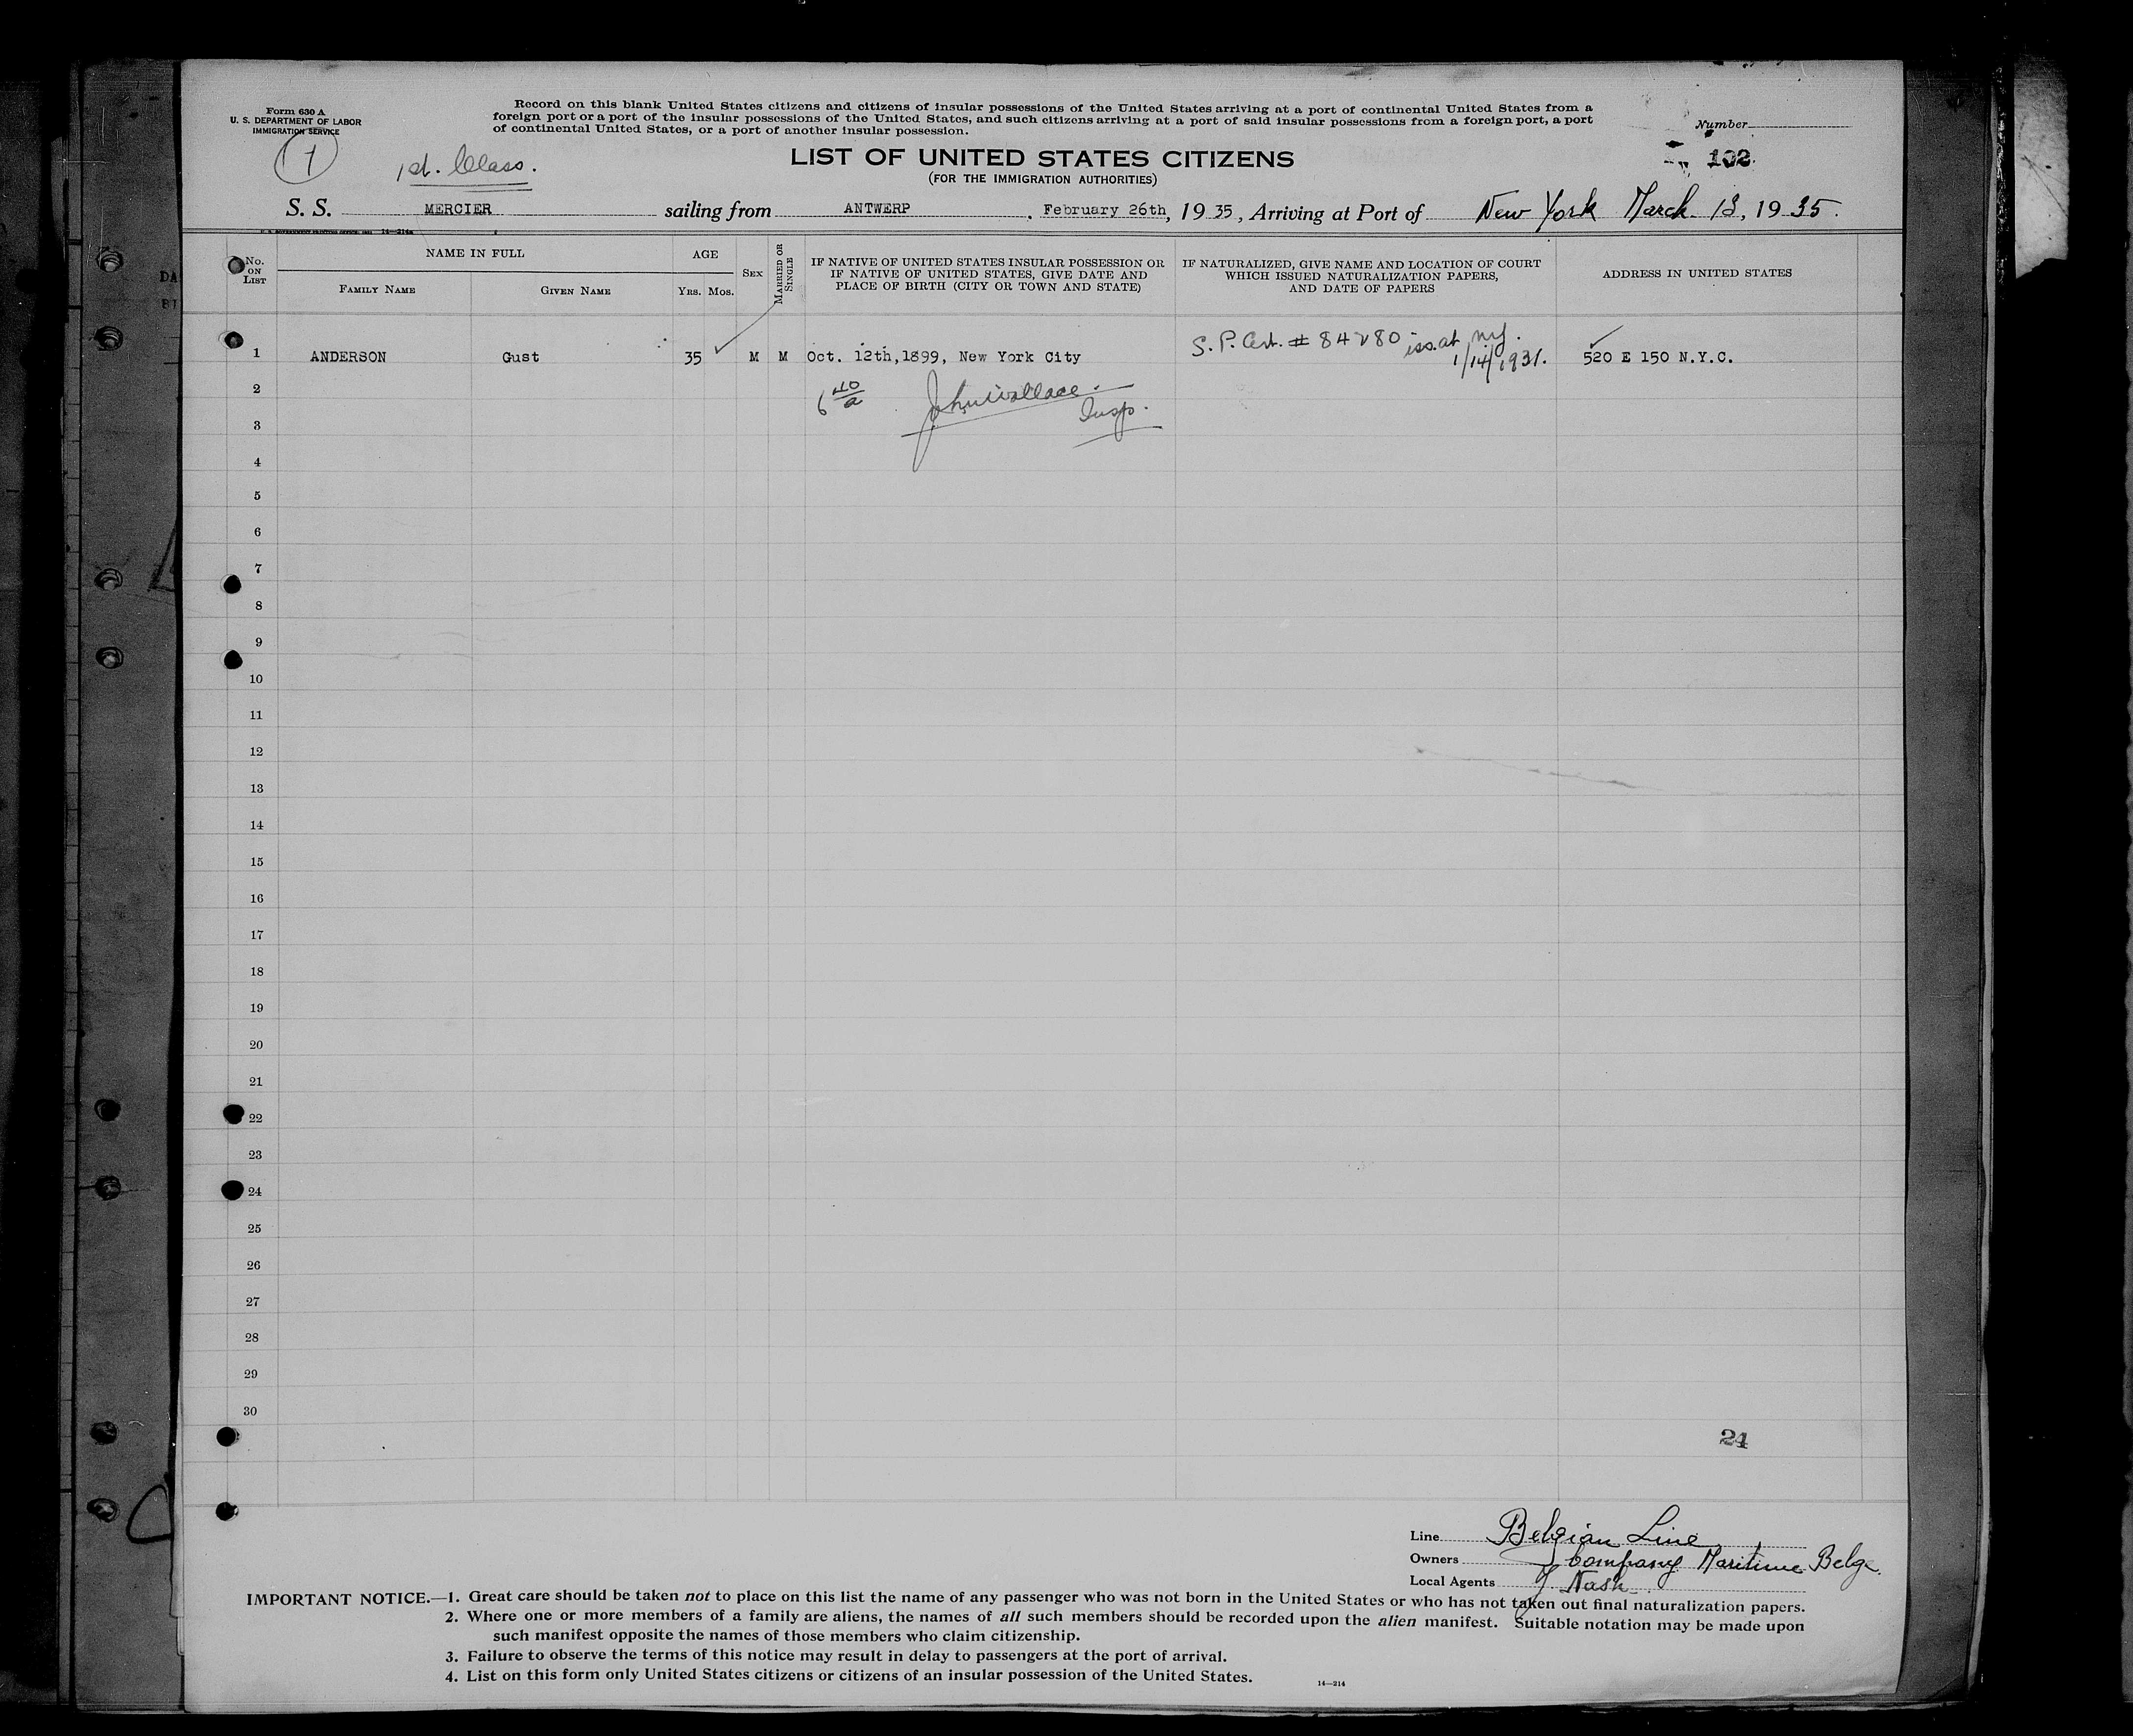 Form 630 A
U. S. DEPARTMENT OF LABOR
IMMIGRATION SERVICE
Record on this blank United States citizens and citizens of insular possessions of the United States arriving at a port of continental United States from a
foreign port or a port of the insular possessions of the United States, and such citizens arriving at a port of said insular possessions from a foreign port, a port
of continental United States, or a port of another insular possession.
Number
102
1
1st. Class.
LIST OF UNITED STATES CITIZENS
(FOR THE IMMIGRATION AUTHORITIES)
S. S. MERCIER sailing from ANTWERP. February 26th, 1935, Arriving at Port of New York March 13, 1935.
No. ON LIST
NAME IN FULL
FAMILY NAME
GIVEN NAME
AGE
YRS. MOS.
SEX
MARRIED OR SINGLE
IF NATIVE OF UNITED STATES INSULAR POSSESSION OR
IF NATIVE OF UNITED STATES, GIVE DATE AND
PLACE OF BIRTH (CITY OR TOWN AND STATE)
IF NATURALIZED, GIVE NAME AND LOCATION OF COURT
WHICH ISSUED NATURALIZATION PAPERS,
AND DATE OF PAPERS
ADDRESS IN UNITED STATES
1 ANDERSON Gust 35 M M Oct. 12th, 1899, New York City S. P. Cert. # 84280 iss. at N.Y. 1/14/1931. 520 E 150 N.Y.C.
2
John Wallace
Insp.
3
4
5
6
7
8
9
10
11
12
13
14
15
16
17
18
19
20
21
22
23
24
25
26
27
28
29
30
24
Line Belgian Line
Owners Company Maritime Belge
Local Agents J Nash
IMPORTANT NOTICE.—1. Great care should be taken not to place on this list the name of any passenger who was not born in the United States or who has not taken out final naturalization papers.
2. Where one or more members of a family are aliens, the names of all such members should be recorded upon the alien manifest. Suitable notation may be made upon
such manifest opposite the names of those members who claim citizenship.
3. Failure to observe the terms of this notice may result in delay to passengers at the port of arrival.
4. List on this form only United States citizens or citizens of an insular possession of the United States.
14—214